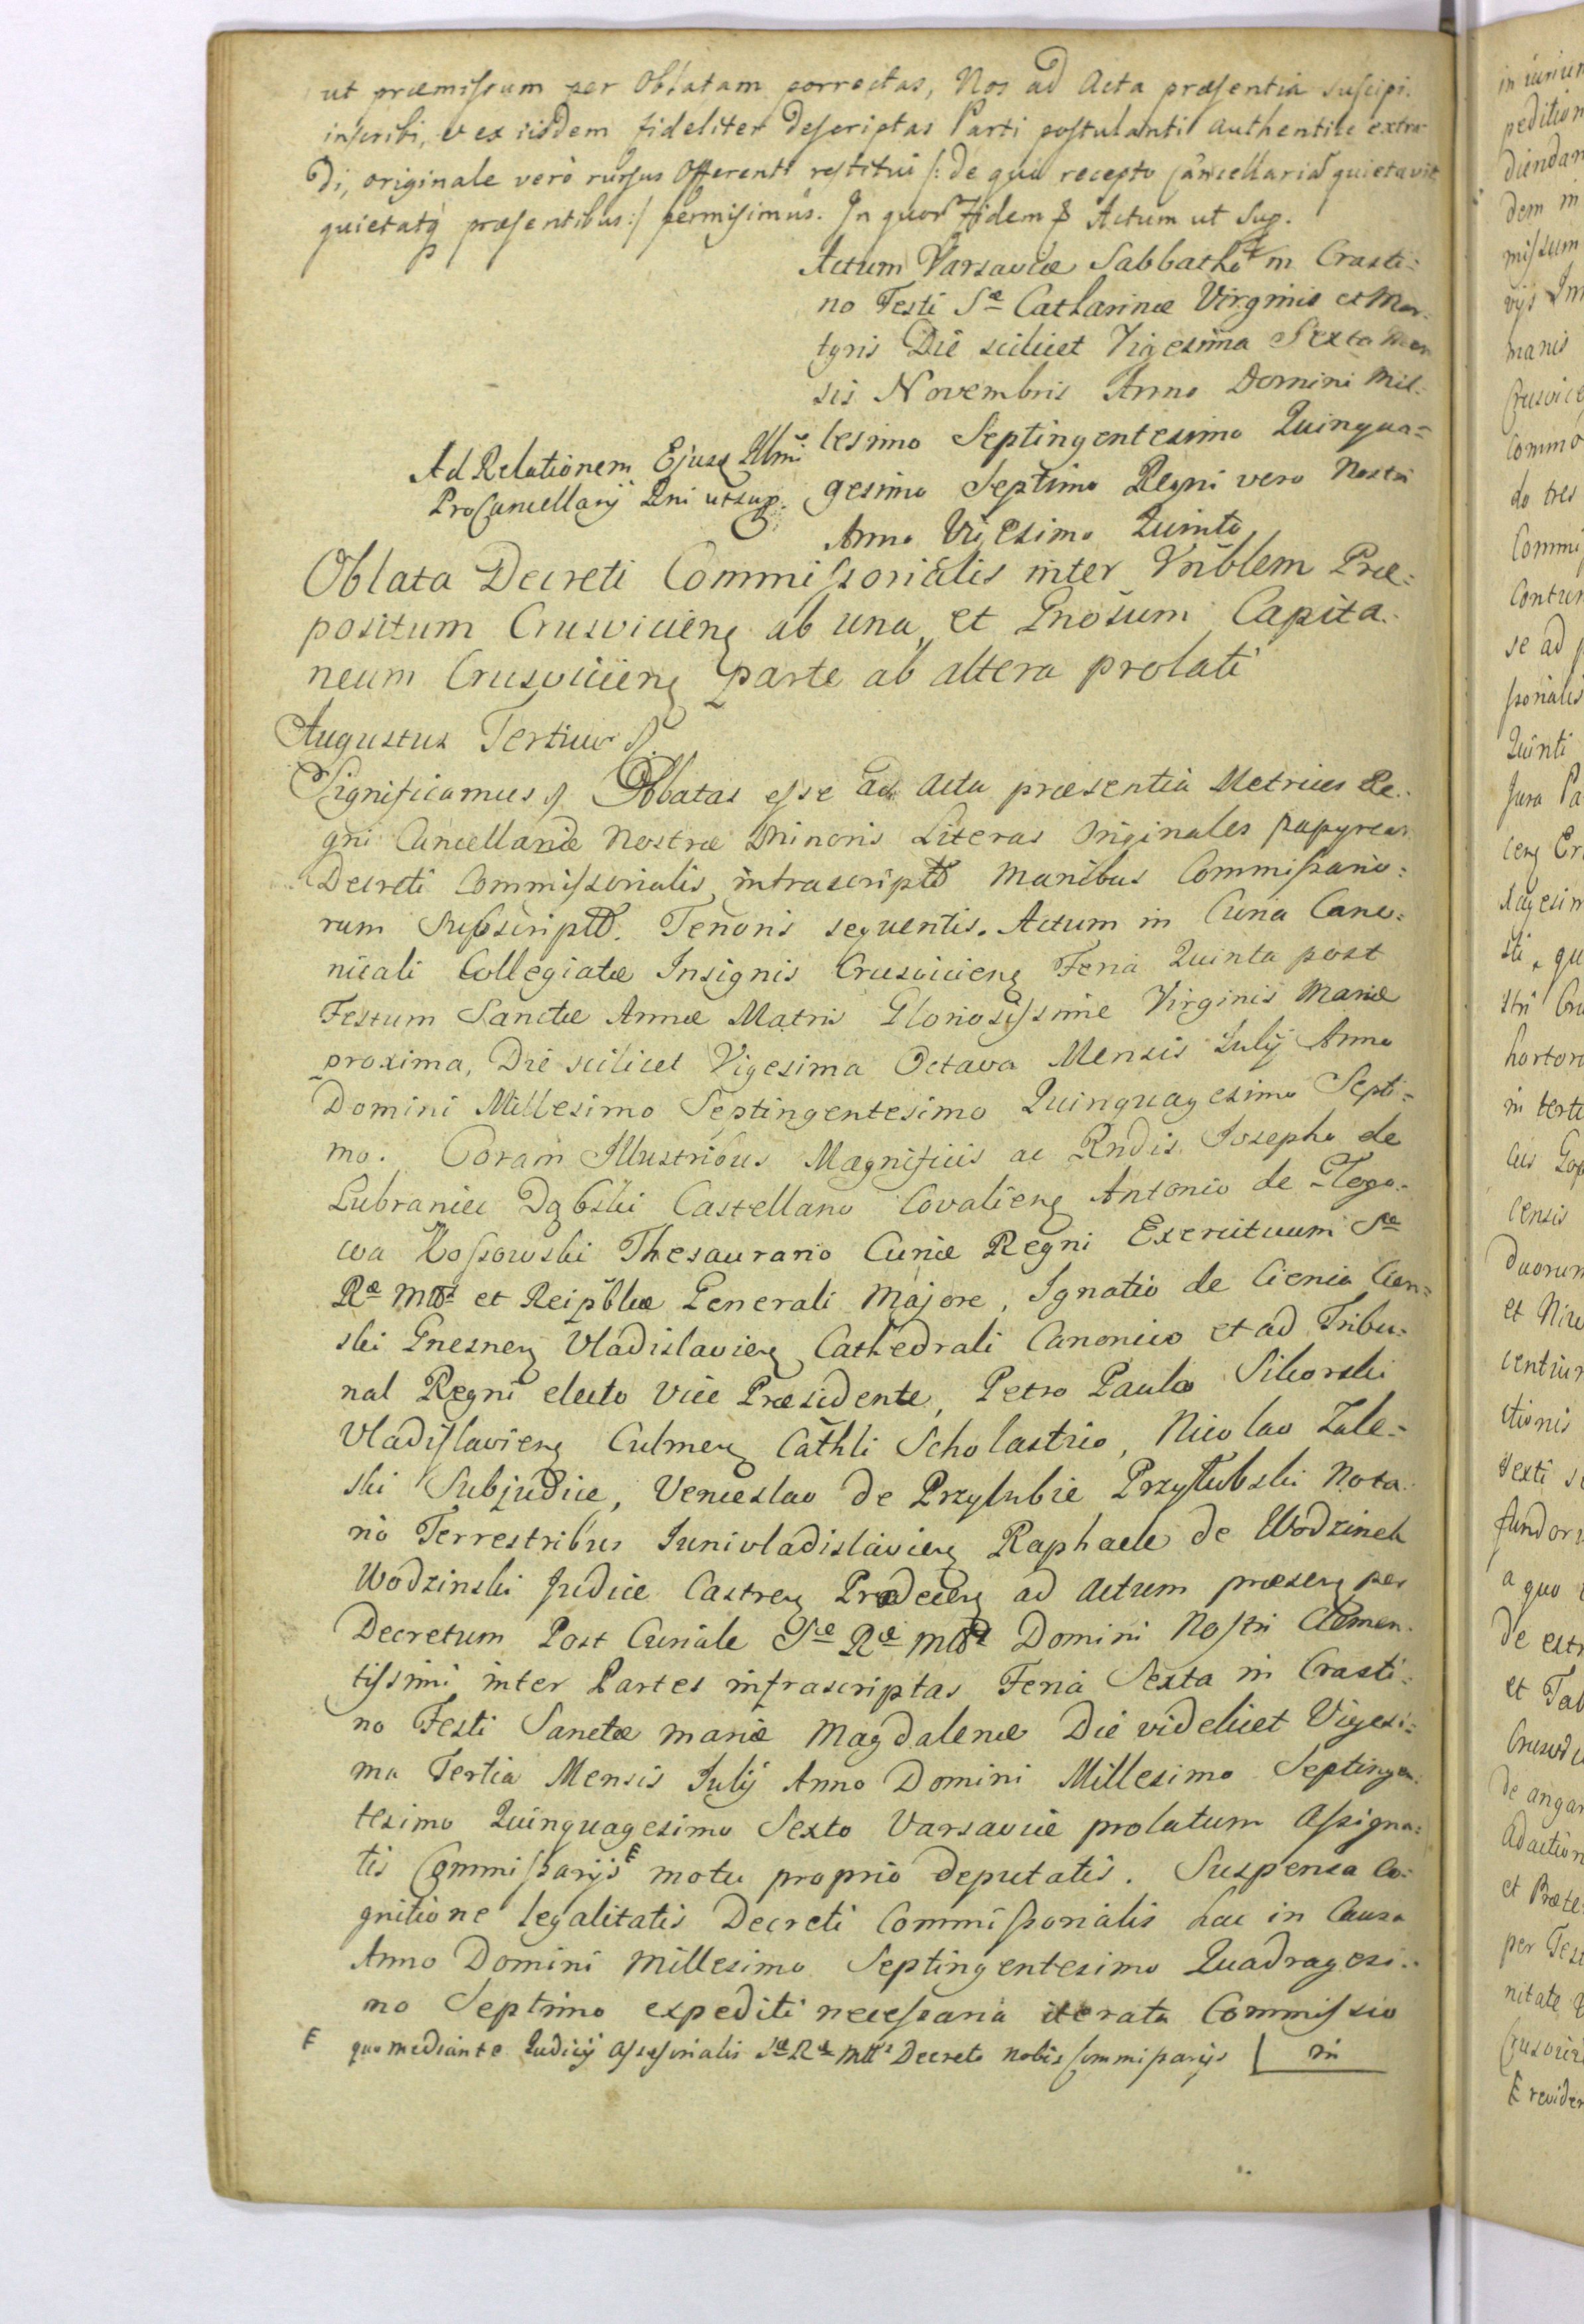 ut præmissum per Oblatam porrectas, Nos ad Acta præsentia suscipi
inscribi, et ex iisdem fideliter descriptas Parti postulanti authentice extra-
di, originale verò rursus Offerenti restitui /: de quo recepto Cancellariam quietavit
quietatq præsentibus :/ permisimus. In quor fidem & Actum ut Sup.
Actum Varsaviæ Sabbatho in Crasti:
no Festi Sæ Catharinæ Virginis et Mar:
tyris Die scilicet Vigesima Sexta Men
sis Novembris Anno Domini Mil:
lesimo Septingentesimo Quinqua=
gesimo Septimo Regni vero Nostri
Anno Vigesimo Quinto
Ad Relationem Ejusq Illmi
ProCancellarij Rni ut sup.
Oblata Decreti Commissorialis inter Vnblem Præ:
positum Crusvicieñ ab una, et Gnosum Capita:
neum Crusvicieñ parte ab altera prolati
Augustus Tertius &.
Significamus & Oblatas esse ad Acta præsentia Metrices Re:
gni Cancellariæ Nostræ Minoris Literas Originales papyreas
Decreti Commissorialis intrascripti Manibus Commissario:
rum Subscript. Tenoris sequentis. Actum in Curia Cano:
nicali Collegiatæ Insignis Crusvicieñ Feria Quinta post
Festum Sanctæ Annæ Matris Gloriosissime Virginis Mariæ
proxima, Die scilicet Vigesima Octava Mensis Julij Anno
Domini Millesimo Septingentesimo Quinquagesimo Septi:
mo. Coram Illustribus Magnificis ac Rndis Josepho de
Lubraniec Dąbski Castellano Covalieñ Antonio de Głogo:
wa Kossowski Thesaurario Curiæ Regni Exercituum Sæ
Ræ Mttis et Reipblicæ Generali Majore, Ignatio de Cienia Cien:
ski Gnesneñ Vladislavieñ Cathedrali Canonico et ad Tribu:
nal Regni electo Vice Præsidente, Petro Paulo Sikorski
Vladislavieñ Culmeñ Cathli Scholastrio, Nicolao Zale:
ski Subjudice, Venceslao de Przylubie Przyłubski Nota:
rio Terrestribus Junivladislavieñ Raphaele de Wodzinek
Wodzinski Judice Castreñ Prædecieñ ad Actum præseñ per
Decretum Post Curiale Sæ Ræ Mttis Domini Nostri Clemen:
tissimi inter Partes infrascriptas Feria Sexta in Crasti:
no Festi Sanctæ Mariæ Magdalenæ Die videlicet Vigesi:
ma Tertia Mensis Julij Anno Domini Millesimo Septingen:
tesimo Quinquagesimo Sexto Varsaviæ prolatum Assigna:
tis Commissarijs E motu proprio deputatis. Suspensa Co:
gnitione legalitatis Decreti Commissorialis hac in Causa
Anno Domini Millesimo Septingentesimo Quadragesi:
mo Septimo expediti necessaria iterata Commissio
E quo mediante Judicij Assessorialis Sæ Ræ Mttis Decreto nobis Commissarijs | in